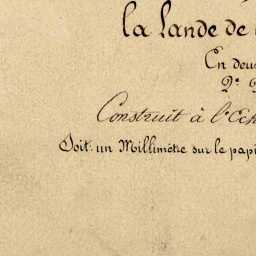 la Lande de
En deux
2.e
Construit à l'Ech
Soit: un Millimètre sur le papi